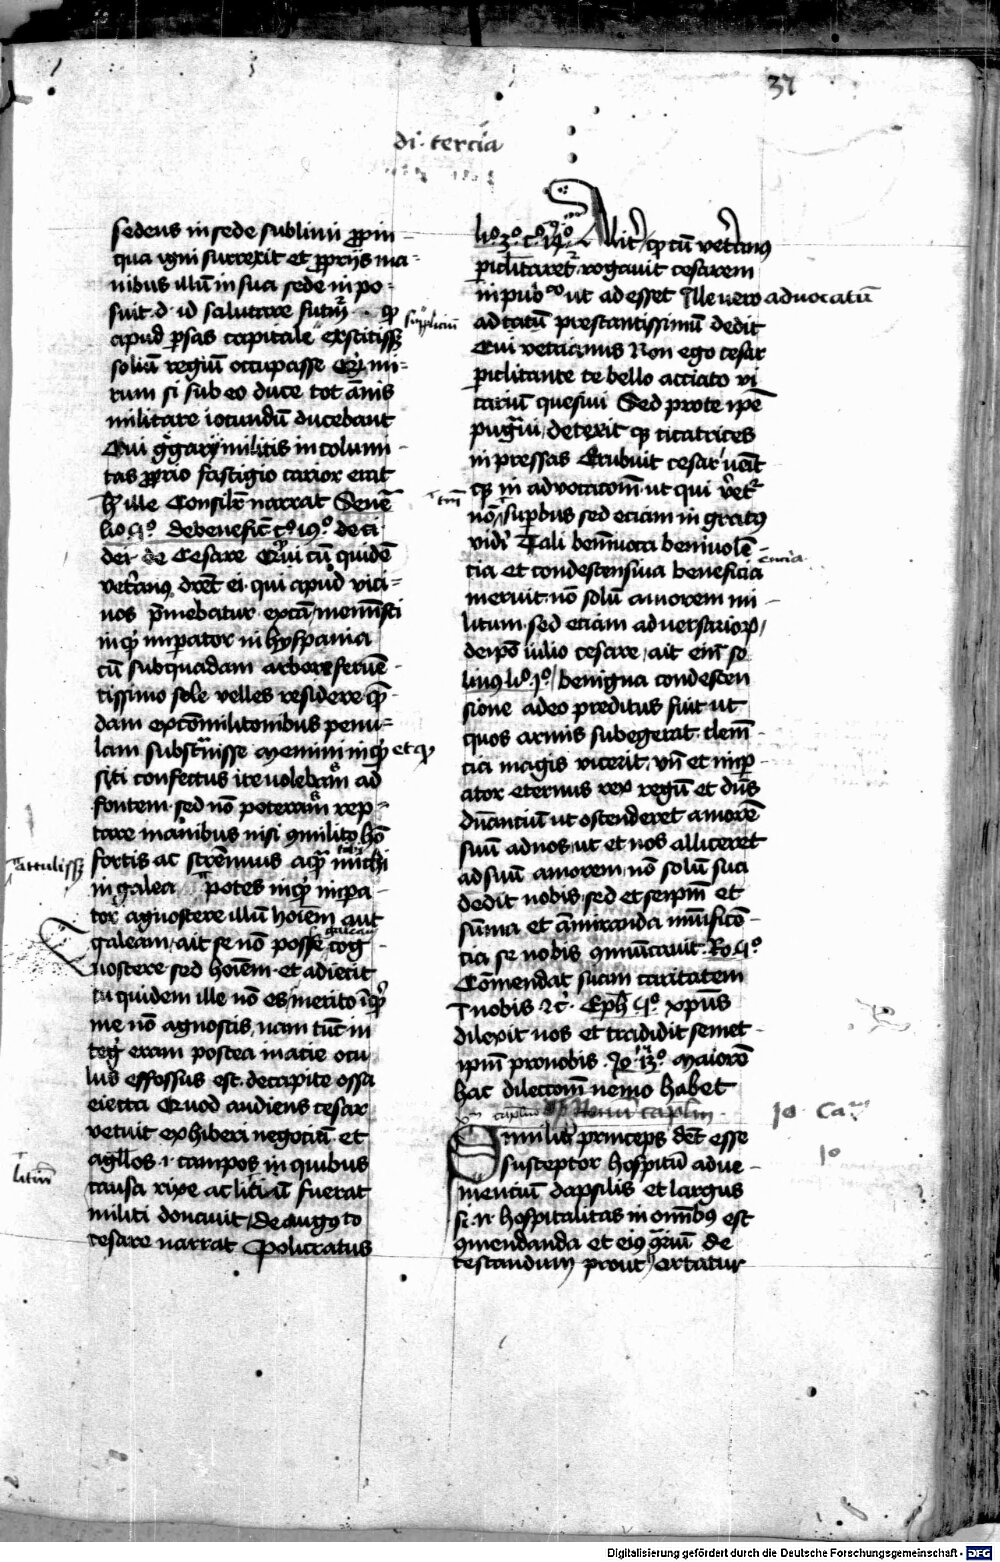 37
di. tercia
sedens in sede sublimi propin
qua igni surrexit et proprijs ma
nibus illum in sua sede inpo
suit d. id salutare futurum qd
apud persas capitale exstitisset supplicium
solium regium occupasse Quid mi
rum si sub eo duce tot annis
militare iocundum ducebant
Cui gregarij militis incolumi
tas proprio fastigio carior erat
hec ille Consimiliter narrat Sene
lio 5º de benefic cº 19º de ci
dei de Cesare Cui cum quidem
veteranus diceret ei qui apud vici
nos premebatur causam meministi
inquit imperator in hyspania
cum sub quadam arbore ferue
tissimo sole velles residere quen
dam ex comilitonibus penu
lam substrauisse Memini inquit et cum
siti confectus ire nolebam ad
fontem sed non poteram rep
tare manibus nisi comilito homo
fortis ac strennuus aquam michi
attulisset
in galea potes inquit impera
tor agnoscere illum hominem aut
galeam ait se non posse galeam cog
noscere sed hominem et adiecit
tu quidem ille non es merito inquit
me non agnoscis nam tunc in
teger eram postea in acie ocu
lus effossus est de capite ossa
eiecta Quod audiens cesar
vetuit exhiberi negocium et
agellos .i. campos in quibus
causa rixe ac litium fuerat
litium
militi donauit / de augusto
cesare narrat Policratus
lio 3º cº 14º Aliter / qd cum veteranus
periclitaretur rogauit cesarem
in publico ut adesset Ille uero aduocatum
ad tantum prestantissimum dedit
Cui veteranus Non ego cesar
periclitante te bello acciato vi
carium quesiui Sed pro te ipse
pugnaui / detexit qd cicatrices
inpressas Erubuit cesar uenit
qd in aduocacionem ut qui veretur
non tantum superbus sed eciam in gratus
videri Tali beniuolen
cia et condescensiua beneficia
meruit non solum amorem mi
litum sed eciam aduersariorum /
de ipso iulio cesare / ait enim so
linus lio 1º / benigna condescen
sione adeo preditus fuit ut
quos armis subegerat clemen
cia magis vicerit Vnde et imper
ator eternus rex regum et dominus
dominancium ut ostenderet amorem
suum ad nos ut et nos alliceret
ad suum amorem non solum sua
dedit nobis sed et seipsum et
summa et ammiranda munificen
cia se nobis communicauit Ro 5º
Comendat suam caritatem
in nobis etc. Eph 5º xpus
dilexit nos et tradidit semet
ipsum pro nobis Jo 13º Maiorem
hac dileccionem nemo habet
10 Cam
Similiter princeps debet esse
10
susceptor hospitum adue
niencium dapsilis et largus
si. n. hospitalitas in omnibus est
comendanda et eius contrarium de
testandum prout hortatur
Digitalisierung gefördert durch die Deutsche Forschungsgemeinschaft - DFG